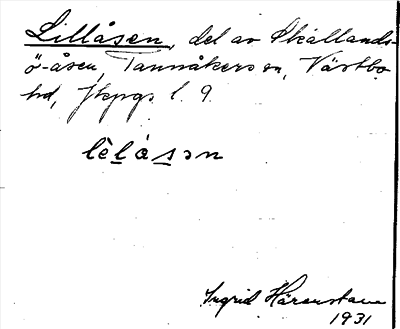 Lillåsen, del av Skallands-
ö-åsen, Tannåkers sn, Västbo
hd, Jkpgs l. 9.
lèlåsən
Ingrid Härenstam
1931